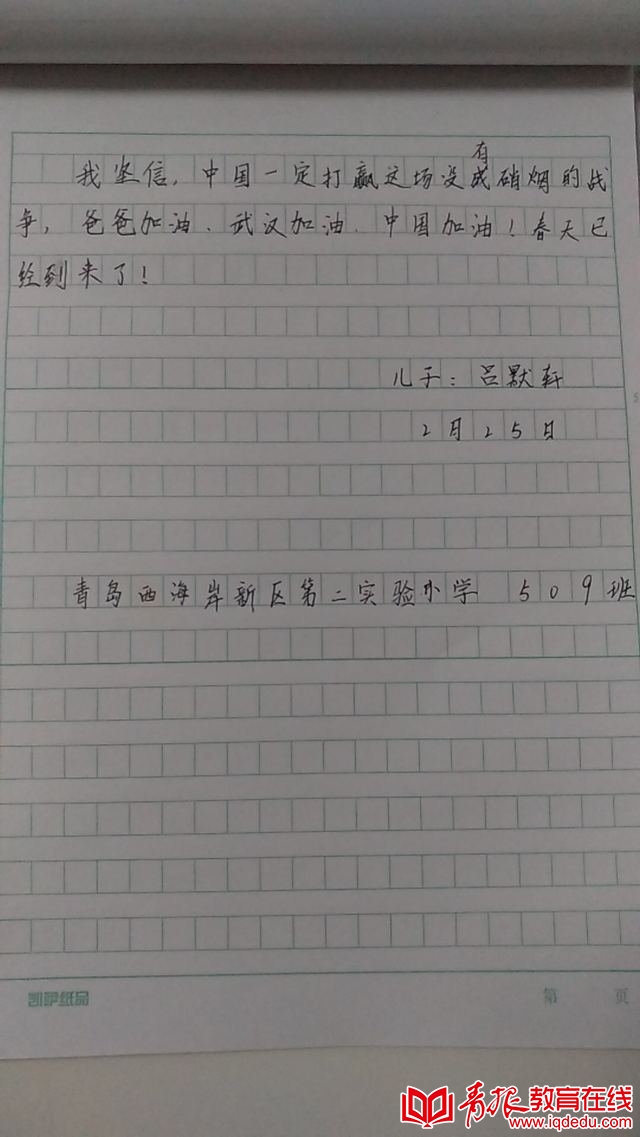 我坚信，中国一定打赢这场没有硝烟的战
争，爸爸加油、武汉加油、中国加油！春天已
经到来了！
儿子：吕默轩
2月25日
青岛西海岸新区第二实验小学 509班
凯萨纸品
第 页
青报教育在线
www.iqdedu.com